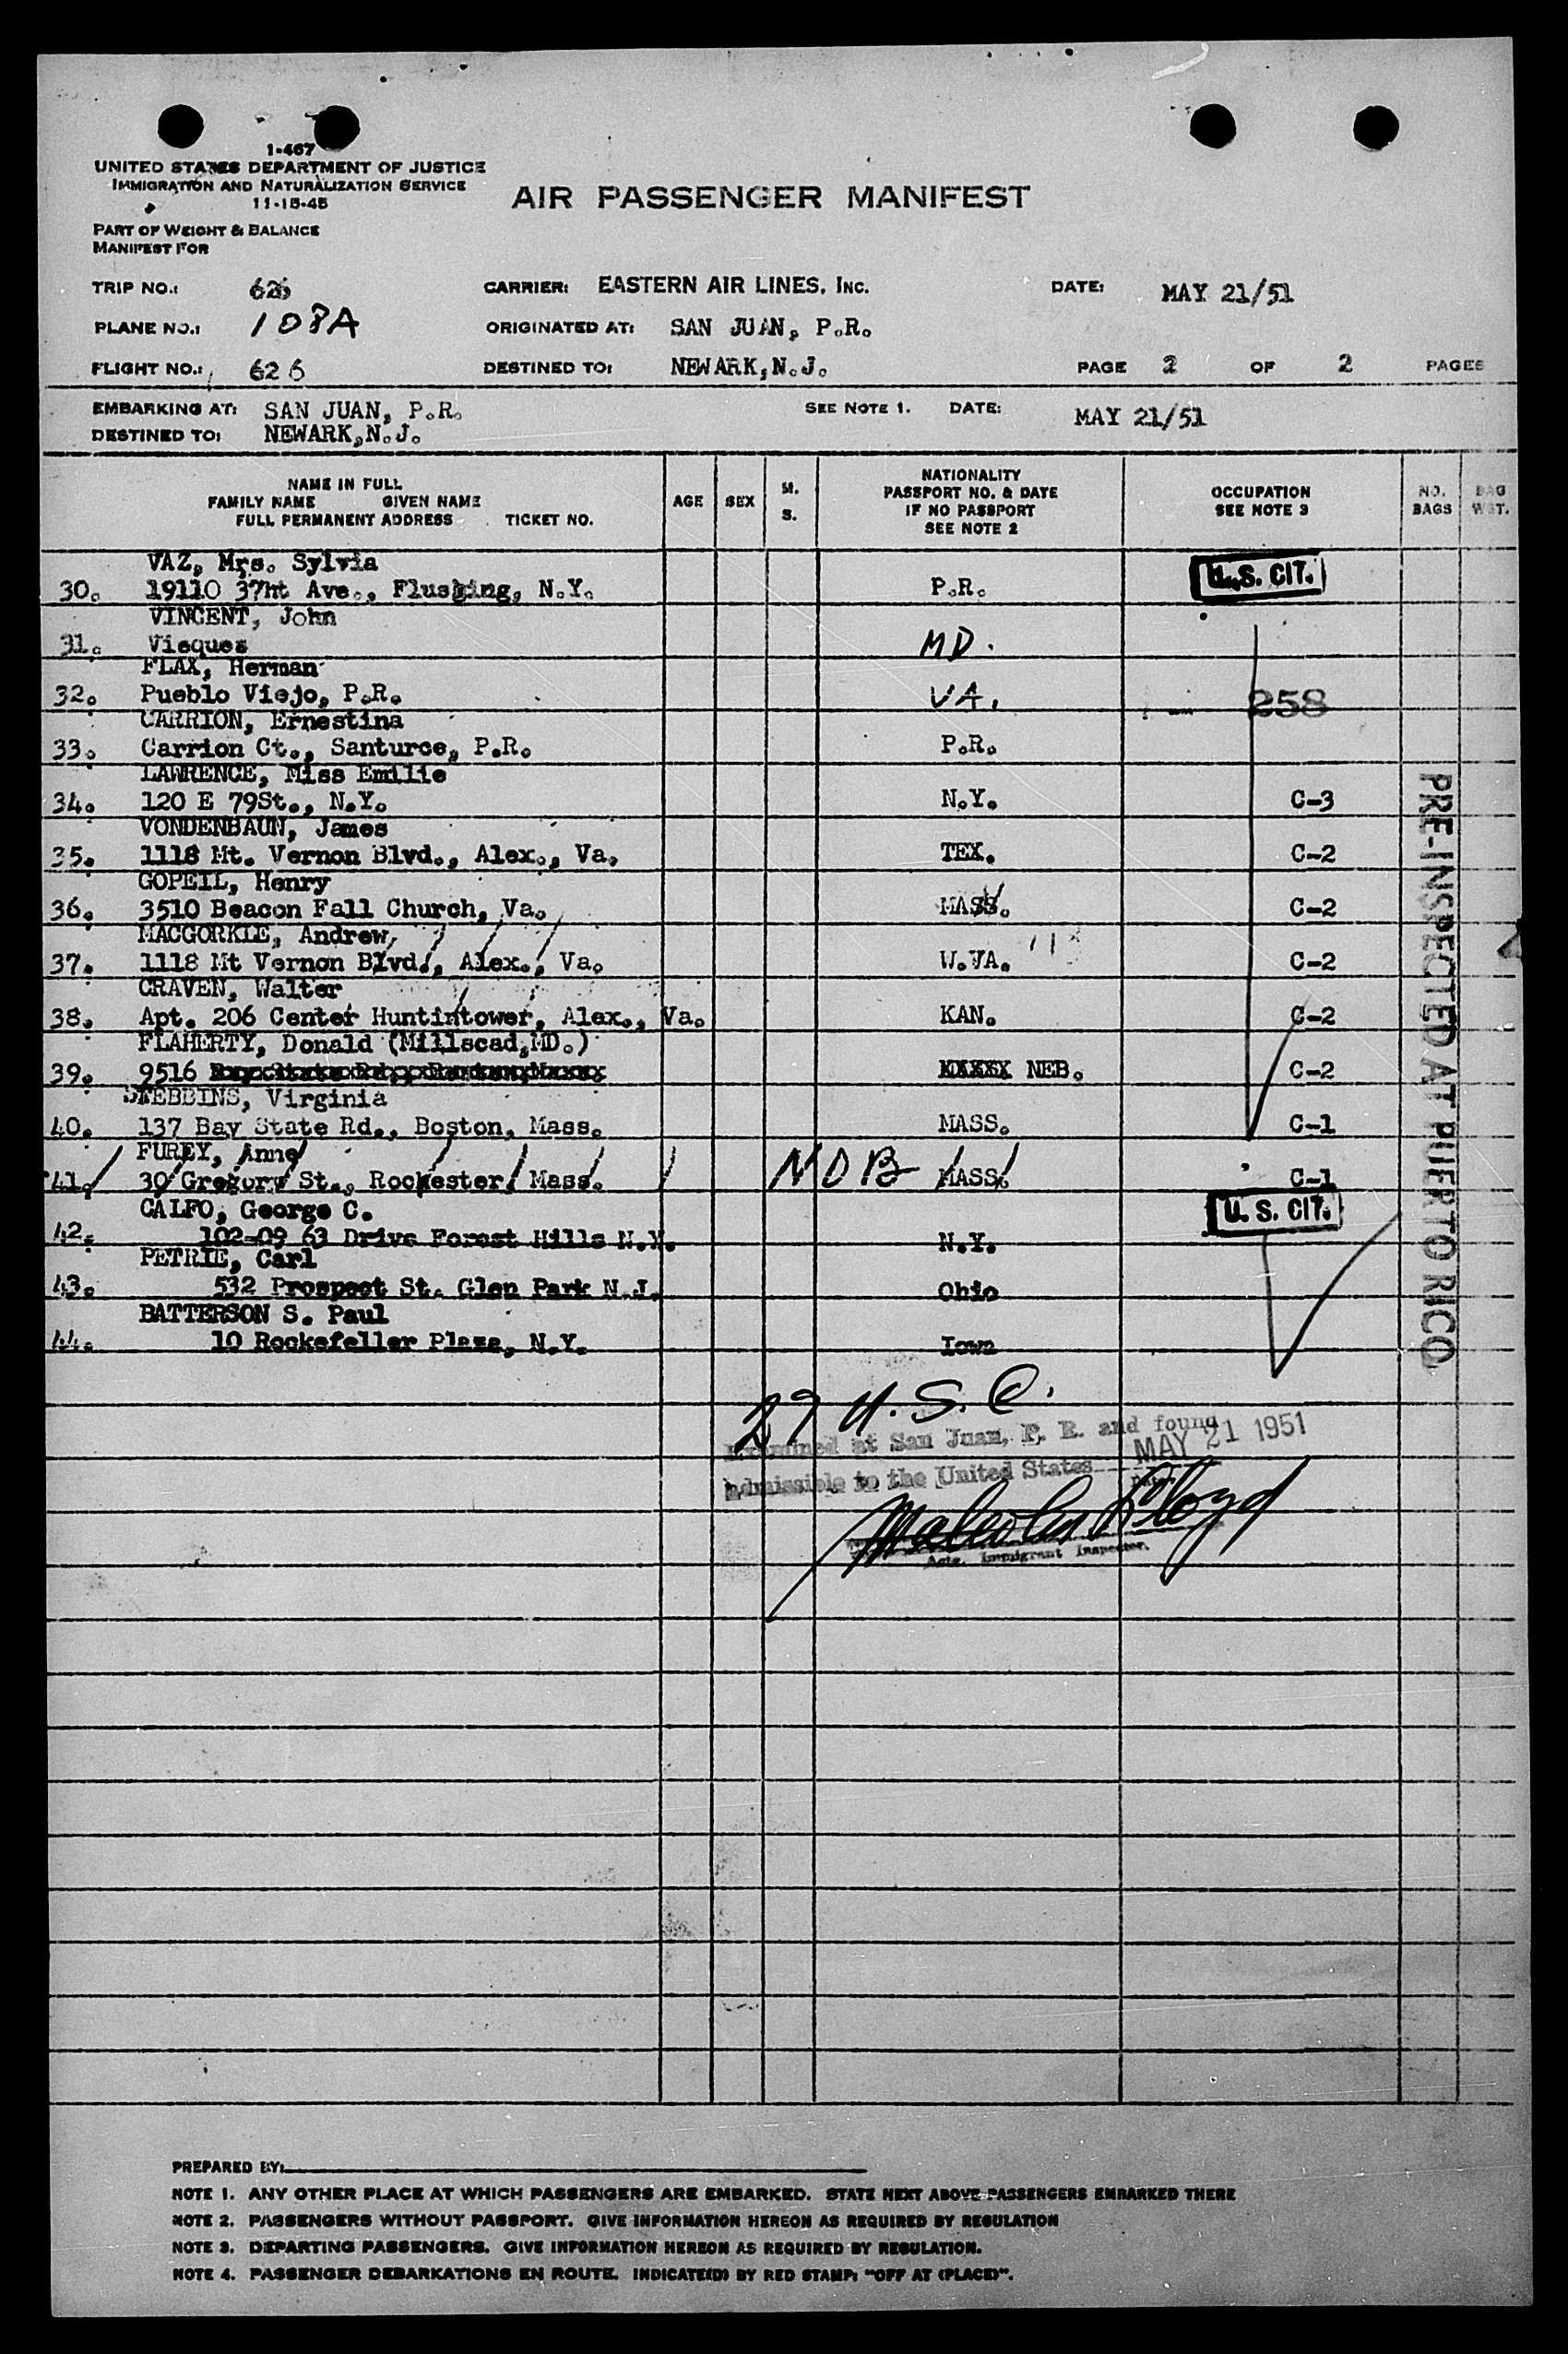 1-467
UNITED STATES DEPARTMENT OF JUSTICE
IMMIGRATION AND NATURALIZATION SERVICE
11-15-45
AIR PASSENGER MANIFEST
PART OF WEIGHT & BALANCE
MANIFEST FOR
TRIP NO.: 626 CARRIER: EASTERN AIR LINES, INC. DATE: MAY 21/51
PLANE NO.: 108A ORIGINATED AT: SAN JUAN, P.R.
FLIGHT NO.: 626 DESTINED TO: NEWARK,N.J. PAGE 2 OF 2 PAGES
EMBARKING AT: SAN JUAN, P.R. SEE NOTE 1. DATE: MAY 21/51
DESTINED TO: NEWARK,N.J.
NAME IN FULL
FAMILY NAME GIVEN NAME
FULL PERMANENT ADDRESS TICKET NO.
AGE
SEX
M.
S.
NATIONALITY
PASSPORT NO. & DATE
IF NO PASSPORT
SEE NOTE 2
OCCUPATION
SEE NOTE 3
NO.
BAGS
BAG
WGT.
VAZ, Mrs. Sylvia
30. 19110 37ht Ave., Flushing, N.Y. P.R. U.S. CIT.
VINCENT, John
31. Vieques MD.
FLAX, Herman
32. Pueblo Viejo, P.R. VA. 258
CARRION, Ernestina
33. Carrion Ct., Santurce, P.R. P.R.
LAWRENCE, Miss Emilie
34. 120 E 79St., N.Y. N.Y. C-3
VONDENBAUN, James
35. 1118 Mt. Vernon Blvd., Alex., Va. TEX. C-2
GOPEIL, Henry
36. 3510 Beacon Fall Church, Va. MASS. C-2
MACGORKLE, Andrew
37. 1118 Mt Vernon Blvd., Alex., Va. W.VA. C-2
CRAVEN, Walter
38. Apt. 206 Center Huntintower, Alex., Va. KAN. C-2
FLAHERTY, Donald (Millscad,MD.)
39. 9516 NEB. C-2
STEBBINS, Virginia
40. 137 Bay State Rd., Boston, Mass. MASS. C-1
FUREY, Anne
41. 30 Gregory St., Rochester, Mass. NDB MASS. C-1
CALFO, George C. U. S. CIT.
42. 102-09 63 Drive Forest Hills N.Y. N.Y.
PETRIE, Carl
43. 532 Prospect St. Glen Park N.J. Ohio
BATTERSON S. Paul
44. 10 Rockefeller Plaza, N.Y. Iowa
PRE-INSPECTED AT PUERTO RICO
27 U.S.C.
Examined at San Juan, P. R. and found
admissible to the United States MAY 21 1951
Date
Malcolm Lloyd
Actg. Immigrant Inspector.
PREPARED BY:
NOTE 1. ANY OTHER PLACE AT WHICH PASSENGERS ARE EMBARKED. STATE NEXT ABOVE PASSENGERS EMBARKED THERE
NOTE 2. PASSENGERS WITHOUT PASSPORT. GIVE INFORMATION HEREON AS REQUIRED BY REGULATION
NOTE 3. DEPARTING PASSENGERS. GIVE INFORMATION HEREON AS REQUIRED BY REGULATION.
NOTE 4. PASSENGER DEBARKATIONS EN ROUTE. INDICATE(D) BY RED STAMP: "OFF AT (PLACE)".